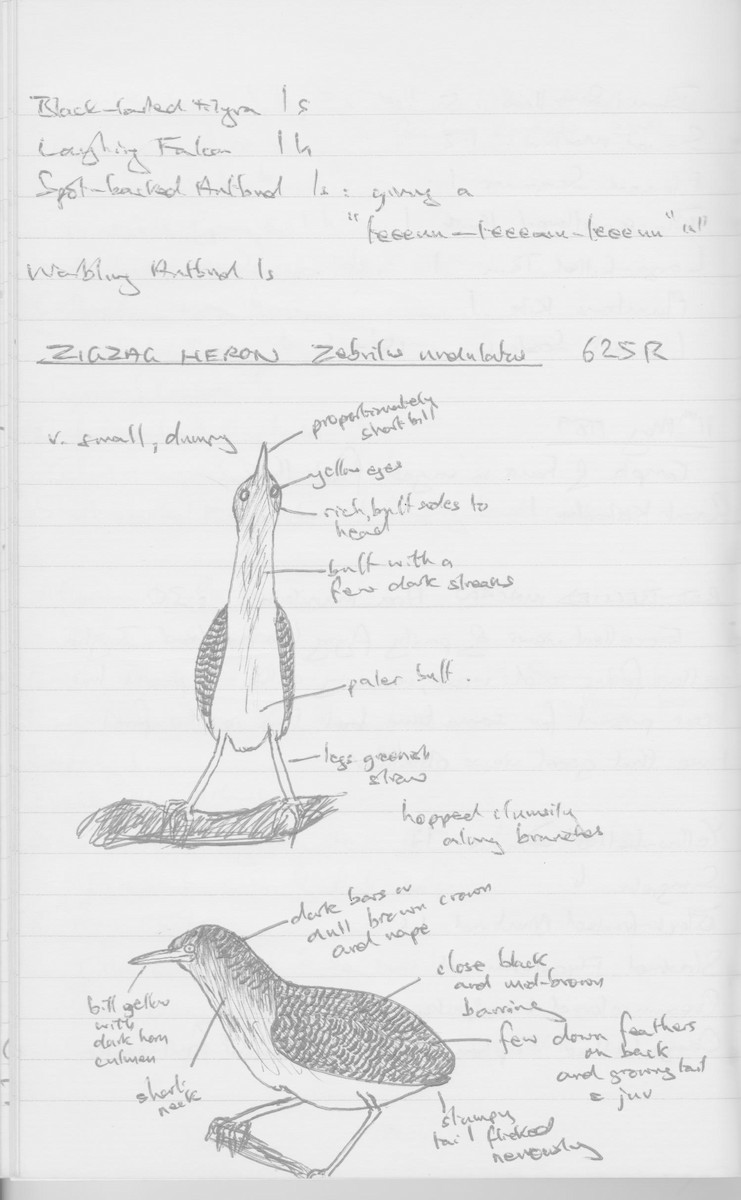 Black-tailed Tityra 1s
Laughing Falcon 1h
Spot-backed Antbird 1s: giving a
"teeeuu-teeeuu-teeeuu"
Warbling Antbird 1s
ZIGZAG HERON Zebrilus undulatus 625R
v. small, dumpy
proportionately
short bill
yellow eyes
rich, buff sides to
head
buff with a
few dark streaks
paler buff.
legs greenish
straw
hopped clumsily
along branches
dark bars on
dull brown crown
and nape
close black
and mid-brown
barring
bill yellow
with
dark horn
culmen
short
neck
few down feathers
on back
and growing tail
juv
stumpy
tail flicked
nervously